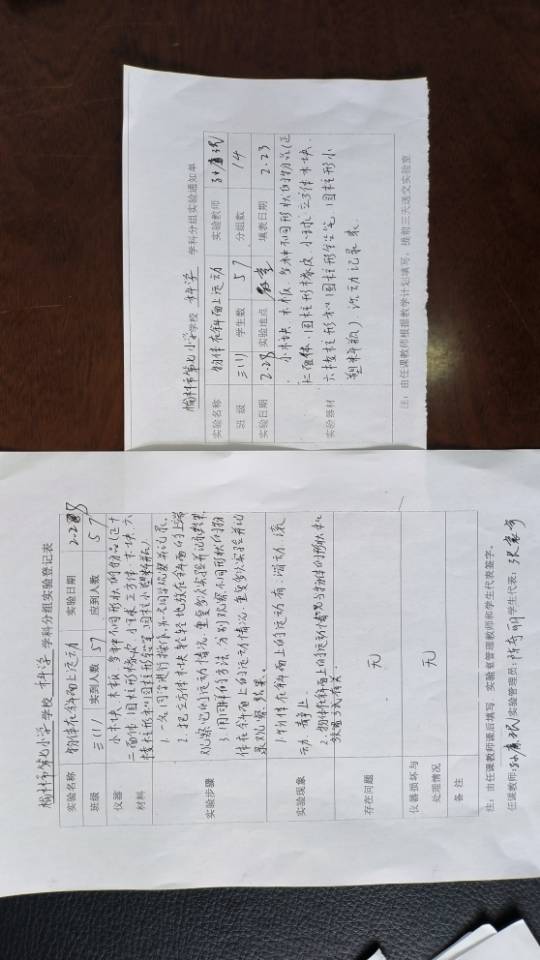 榆树市第七小学学校 科学 学科分组实验通知单
实验名称 物体在斜面上运动 实验教师 孙广珉
班 级 三(1) 学生数 57 分组数 14
实验日期 2.28 实验地点 填表日期 2.23
实验器材
小木块、木板、多种不同形状的物品(正
十二面体、圆柱形橡皮、小球、立方体木块、
六棱柱形和圆柱形铅笔、圆柱形小
塑料瓶)、活动记录表
注:由任课教师根据教学计划填写,提前三天送交实验室
榆树市第七小学学校 科学 学科分组实验登记表
实验名称 物体在斜面上运动 实验日期 2.28
班级 三(1) 实到人数 57 应到人数 57
仪器
材料
小木块、木板、多种不同形状的物品(正十
二面体、圆柱形橡皮、小球、立方体木块、六
棱柱形和圆柱形铅笔、圆柱小塑料瓶)
实验步骤
1.一名同学进行操作,其他同学观察并记录。
2.把立方体木块轻轻地放在斜面的上端
观察它的运动情况,重复多次实验并记录结果
3.用同样的方法,分别观察不同形状的物
体在斜面上的运动情况,重复多次实验并记
录观察结果。
实验现象
1.物体在斜面上的运动有:滑动、滚
动、静止
2.物体在斜面上的运动情况与物体的形状和
放置方式有关。
存在问题 无
仪器损坏与
处理情况
无
备 注
注:由任课教师课后填写,实验室管理教师和学生代表签字。
任课教师:孙广珉 实验管理员: 学生代表: